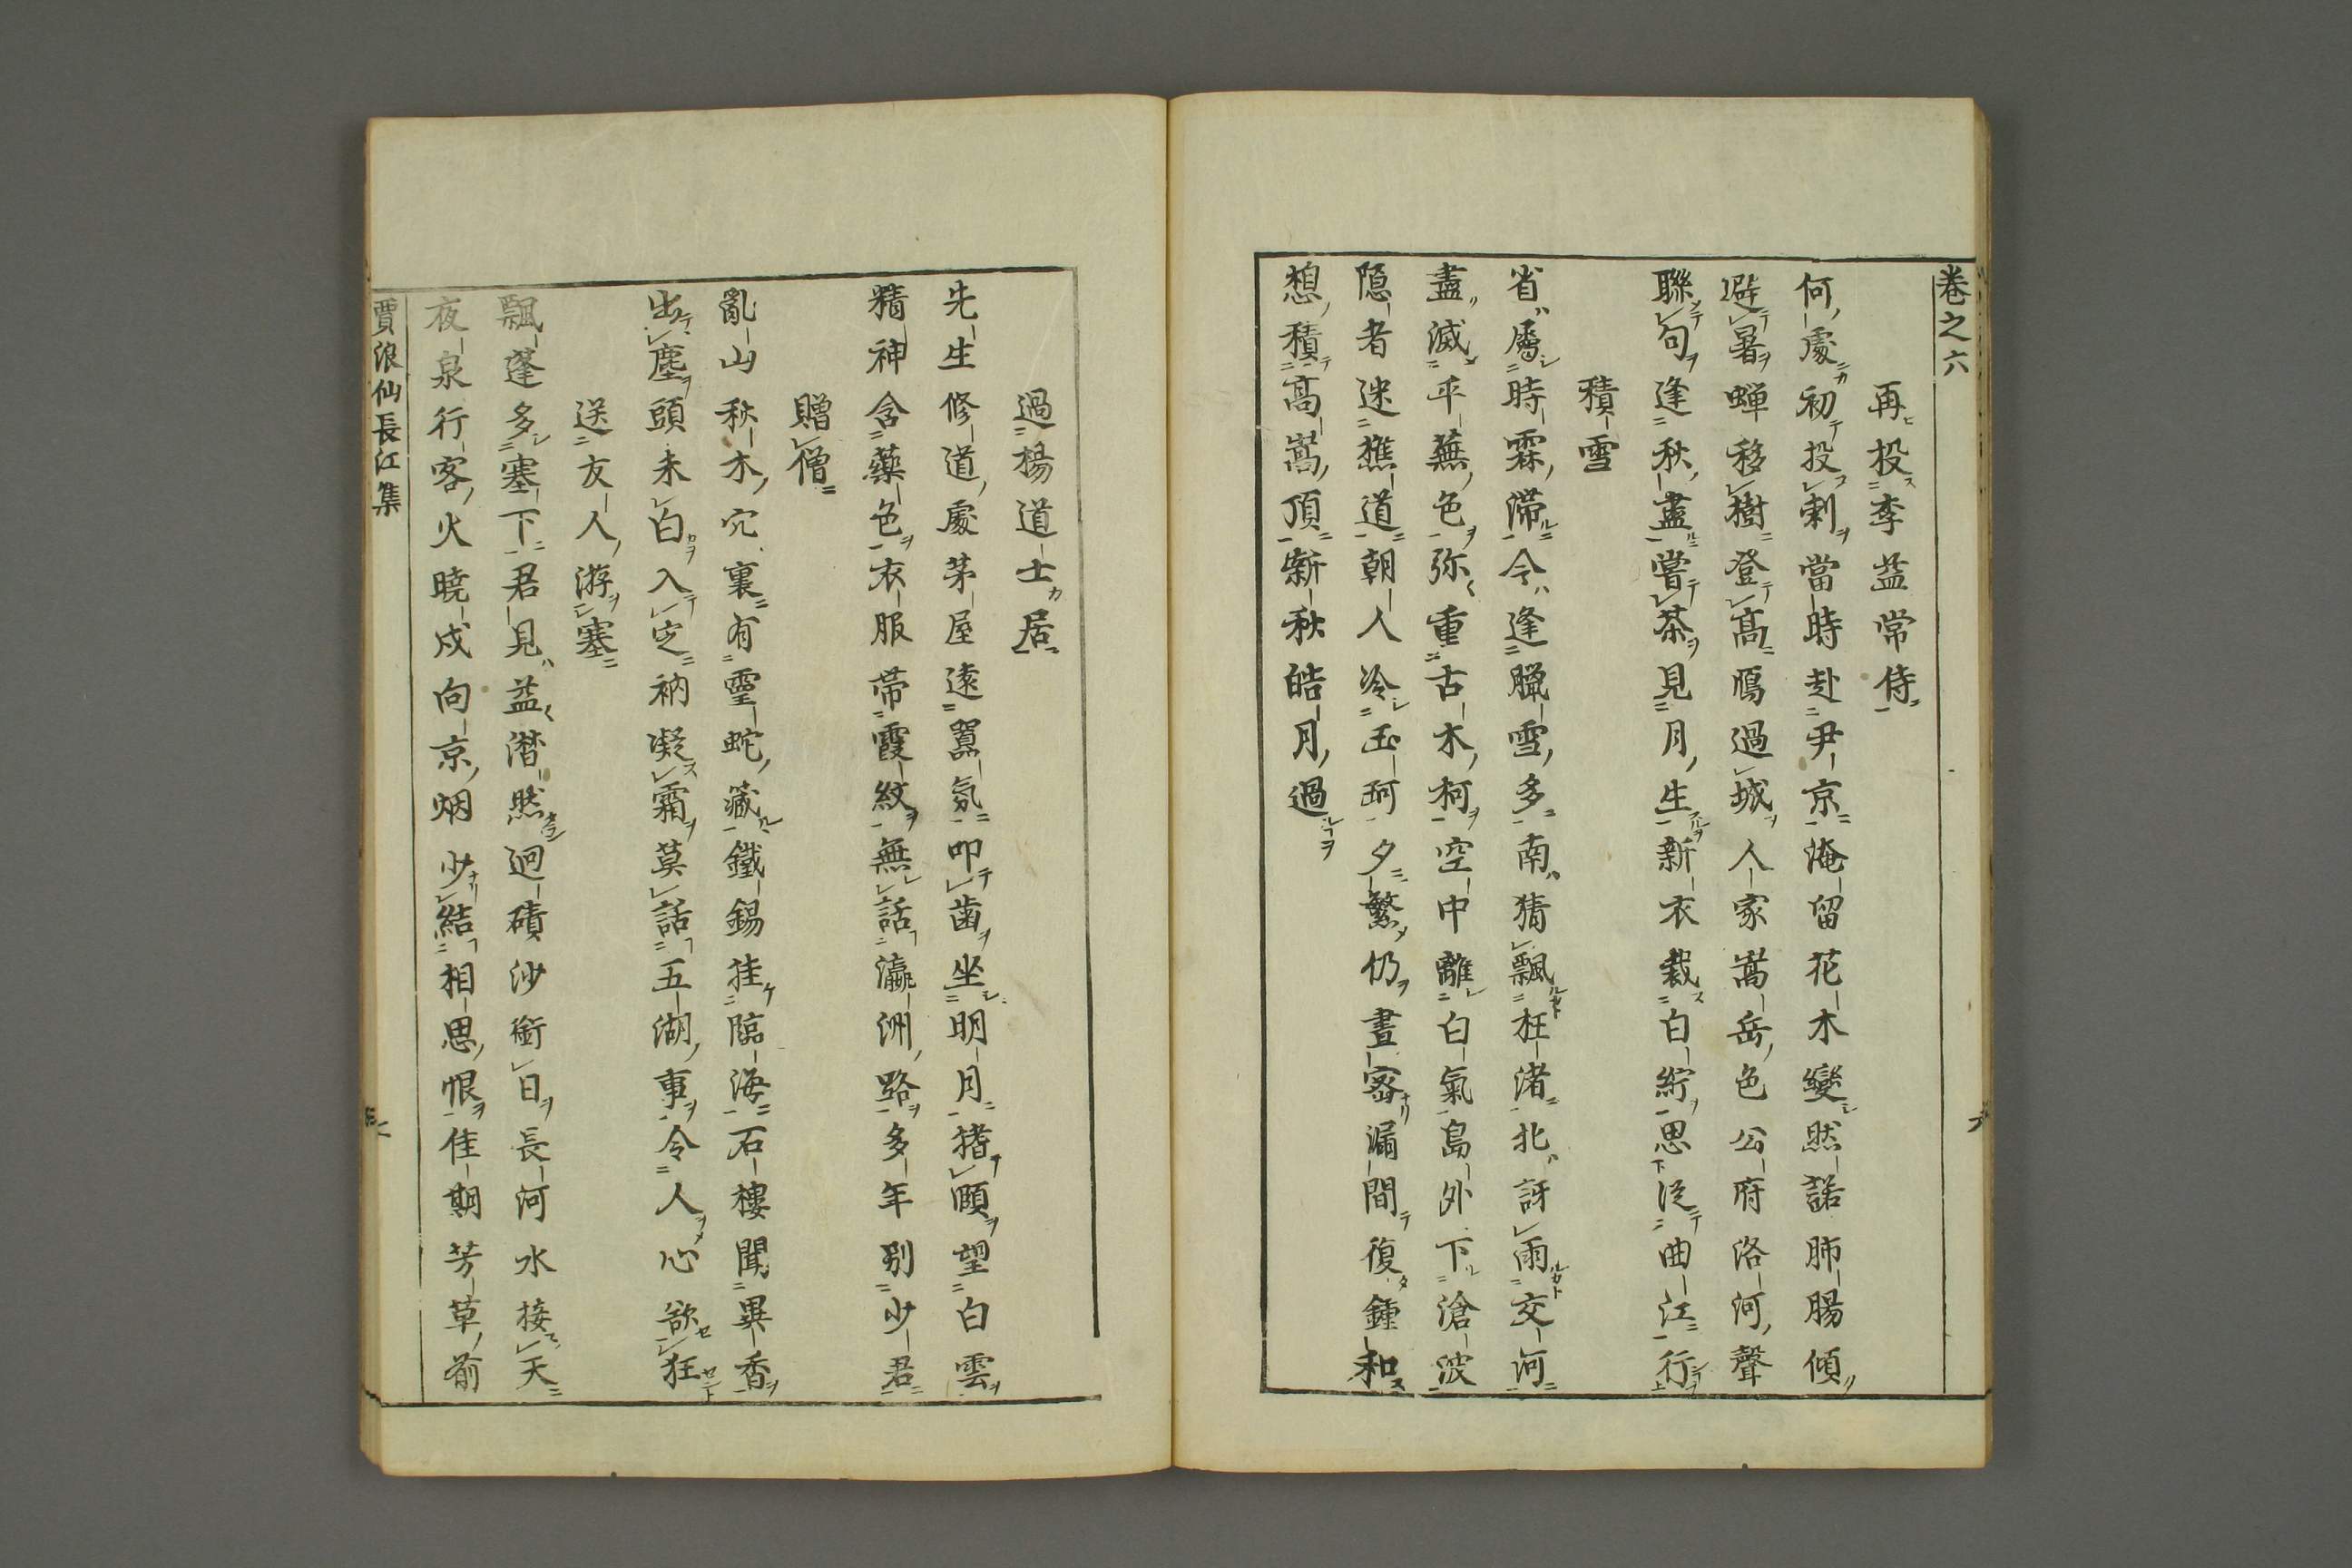 卷之六
再投李益常侍
何處初投刺當時赴尹京淹留花木變然諾肺腸傾
避暑蟬移樹登高鴈過城人家嵩岳色公府洛河聲
聯句逢秋盡嘗茶見月生新衣裁白紵思從曲江行
積雪
省屬時霖滯今逢臘雪多南猜飄枉渚北訝雨交河
盡滅平蕪色弥重古木柯空中離白氣島外下滄波
隠者迷樵道朝人冷玉珂夕繁仍晝密漏間復鍾和
想積高嵩頂新秋皓月過
過楊道士居
先生修道處茅屋遠囂氛叩齒坐明月搘頤望白雲
精神含藥色衣服帶霞紋無話瀛洲路多年別少君
贈僧
亂山秋木穴裏有靈蛇藏鐵錫挂臨海石樓聞異香
出塵頭未白入定衲凝霜莫話五湖事令人心欲狂
送友人游塞
飄蓬多塞下君見益潛然迥磧沙銜日長河水接天
夜泉行客火曉戍向京烟少結相思恨佳期芳草前
賈浪仙長江集